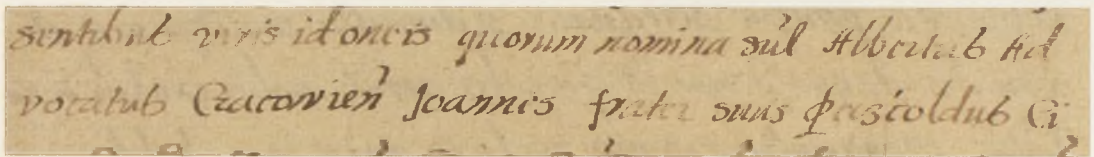 sentibus viris idoneis quorum nomina sul Albertus Ad
vocatus Cracovien Joannes frater suus Pascoldus Ci